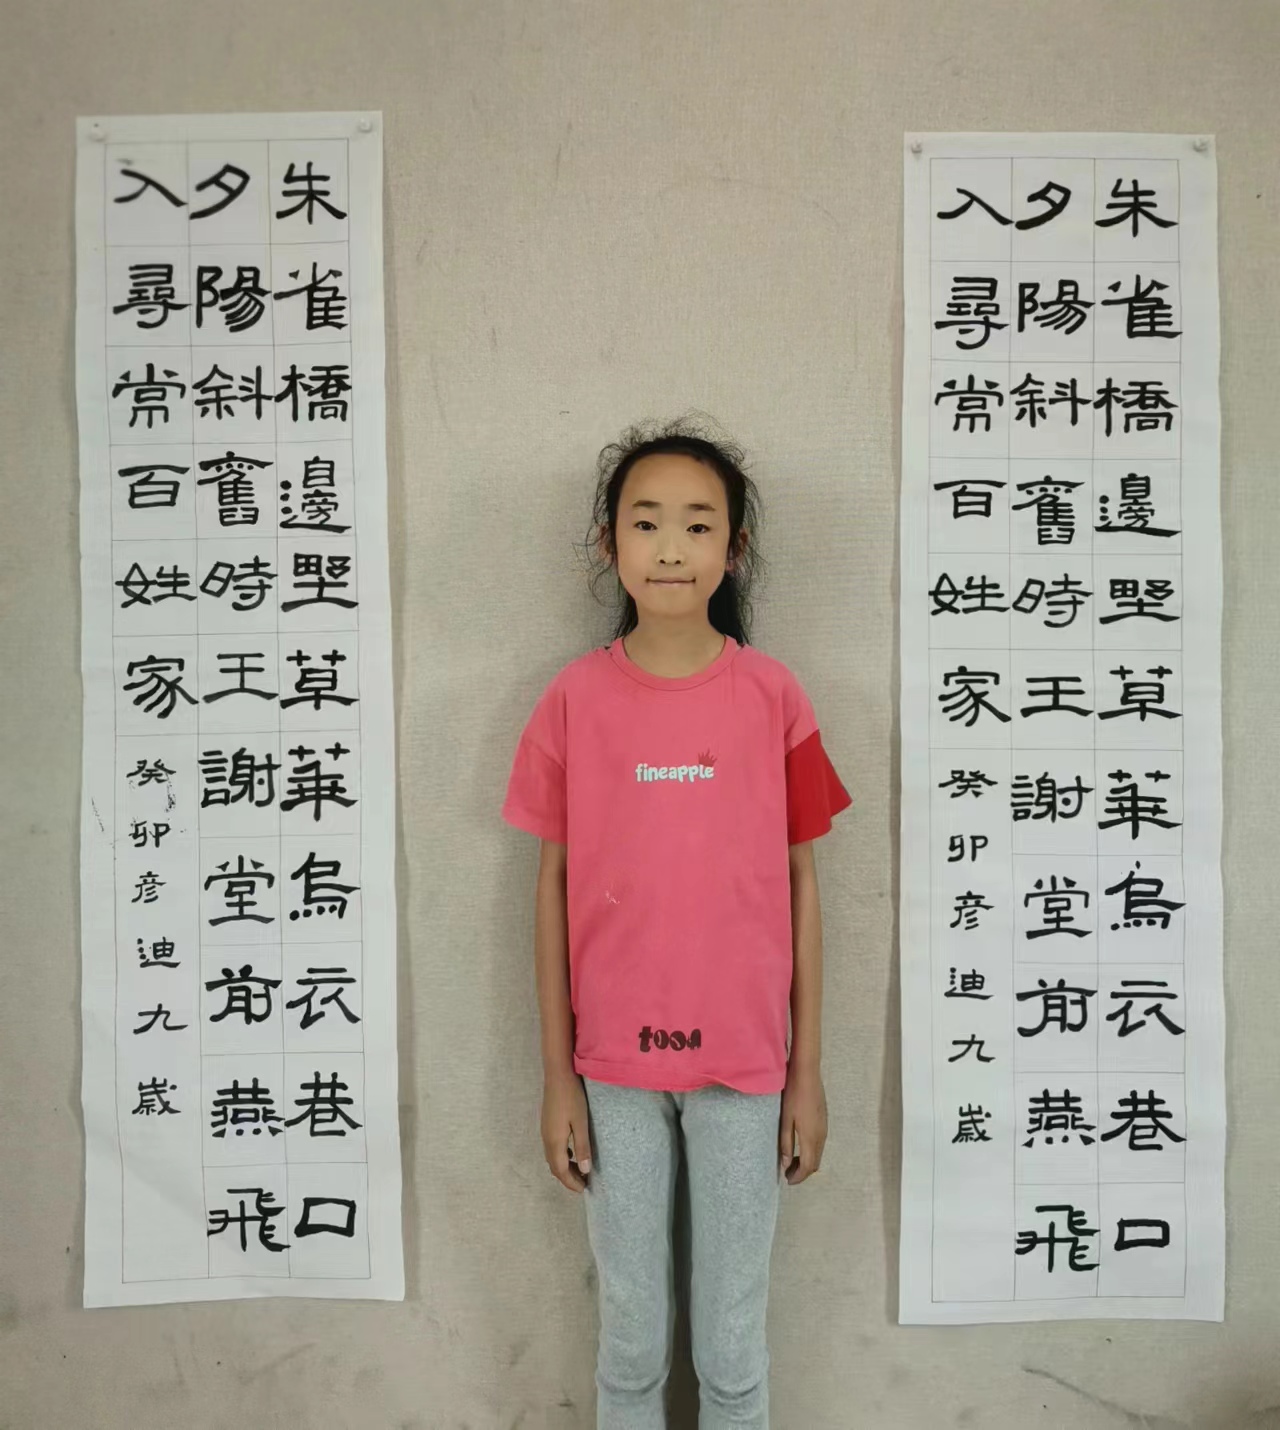 朱雀橋邊野草華烏衣巷口
夕陽斜舊時王謝堂前燕飛
入尋常百姓家
癸卯彦迪九歲
fineapple
朱雀橋邊野草華烏衣巷口
夕陽斜舊時王謝堂前燕飛
入尋常百姓家
癸卯彦迪九歲